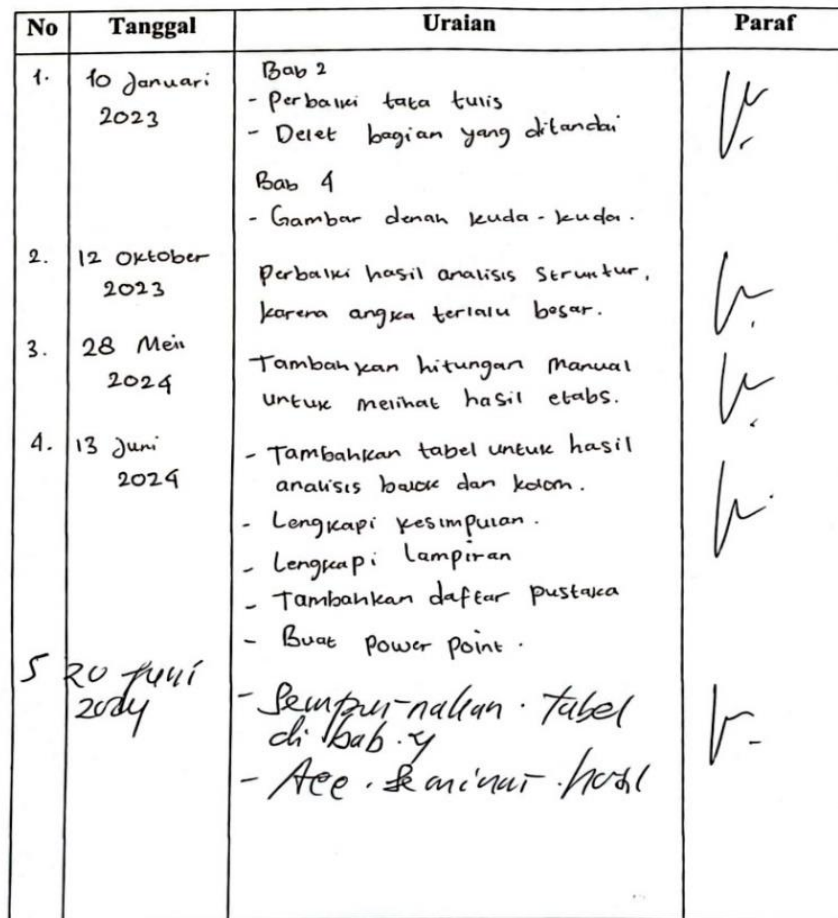 No Tanggal Uraian Paraf
1. 10 Januari 2023
Bab 2
- Perbaiki tata tulis
- Delet bagian yang ditandai
Bab 4
- Gambar denah kuda-kuda.
2. 12 Oktober 2023
Perbaiki hasil analisis Struktur,
karena angka terlalu besar.
3. 28 Mei 2024
Tambahkan hitungan manual
untuk melihat hasil etabs.
4. 13 Juni 2024
- Tambahkan tabel untuk hasil
analisis balok dan kolom.
- Lengkapi kesimpulan.
- Lengkapi Lampiran
- Tambahkan daftar pustaka
- Buat Power Point.
5 20 Juni 2024
- Sempurnakan. tabel
di bab. 4
- Acc. Seminar. hasil